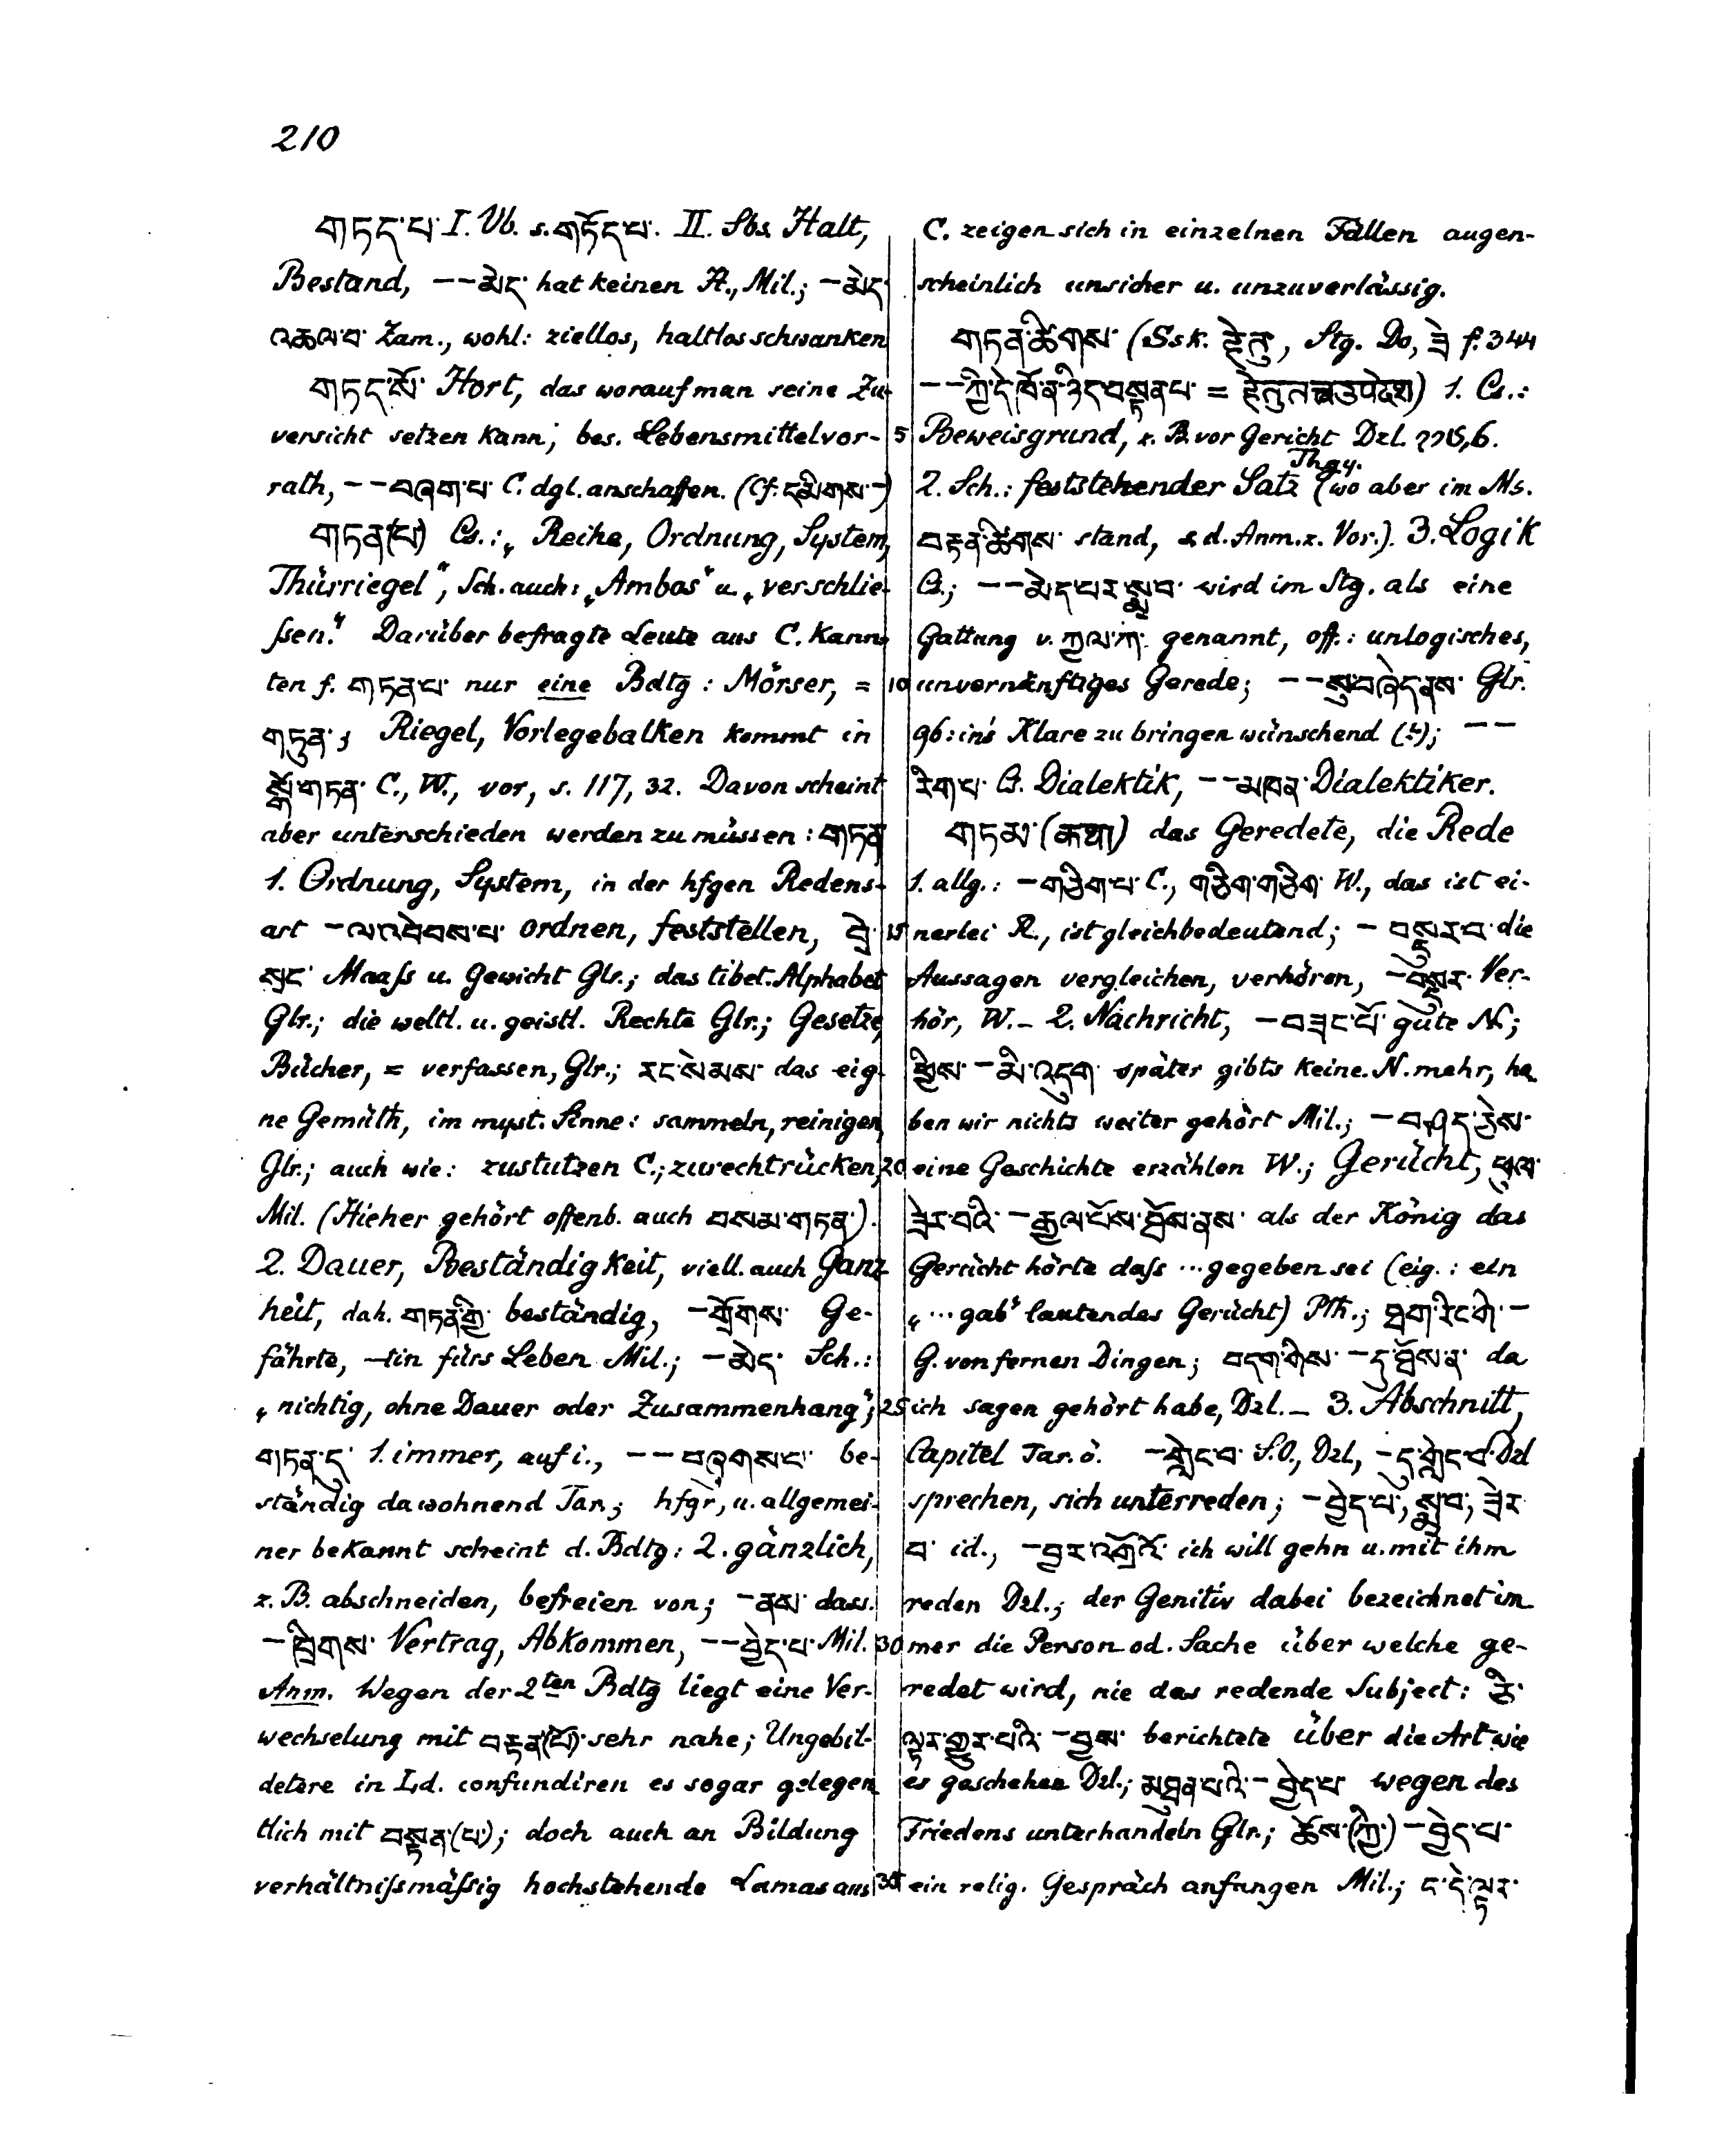 210
གཏད་པ་ I. Vb. s. གཏོད་པ་. II. Sbs Halt,
Bestand, –– མེད་ hat keinen H., Mil.; – མེད་
འཆལ་བ་ Zam., wohl: ziellos, haltlos schwanken
གཏད་སོ་ Hort, das worauf man seine Zu-
versicht setzen kann, bes. Lebensmittelvor-
rath, –– བཞག་པ་ C. dgl. anschaffen. (Cf. དམིགས་–)
གཏན་(པ་) Cs.: „Reihe, Ordnung, System,
Thürriegel“, Sch. auch: „Ambos“ u. „verschlie-
ßen.“ Darüber befragte Leute aus C. kann-
ten f. གཏན་པ་ nur eine Bdtg: Mörser, =
གཏུན་; Riegel, Vorlegebalken kommt in
སྒོ་གཏན་ C., W., vor, s. 117, 32. Davon scheint
aber unterschieden werden zu müssen: གཏན
1. Ordnung, System, in der hfgen Redens-
art – ལ་འབེབས་པ་ ordnen, feststellen, བྲེ་
སྲང་ Maaß u. Gewicht Glr.; das tibet. Alphabet
Glr.; die weltl. u. geistl. Rechte Glr.; Gesetze,
Bücher, = verfassen, Glr.; རང་སེམས་ das eig-
ne Gemüth, im myst. Sinne: sammeln, reinigen,
Glr.; auch wie: zustutzen C.; zurechtrücken,
Mil. (Hieher gehört offenb. auch བསམ་གཏན་).
2. Dauer, Beständigkeit, viell. auch Ganz-
heit, dah. གཏན་གྱི་ beständig, – གྲོགས་ Ge-
fährte, –tin fürs Leben Mil.; – མེད་ Sch.:
„nichtig, ohne Dauer oder Zusammenhang“;
གཏན་དུ་ 1. immer, auf i., –– བཞུགས་པ་ be-
ständig da wohnend Tar.; hfgr, u. allgemei-
ner bekannt scheint d. Bdtg: 2. gänzlich,
z. B. abschneiden, befreien von; – ནས་ dass.
– ཁྲིགས་ Vertrag, Abkommen, –– བྱེད་པ་ Mil.
Anm. Wegen der 2ten Bdtg liegt eine Ver-
wechselung mit བརྟན་(པོ་) sehr nahe; Ungebil-
detere in Ld. confundiren es sogar gelegen
tlich mit བསྟན་(པ་); doch auch an Bildung
verhältnißmäßig hochstehende Lamas aus
C. zeigen sich in einzelnen Fällen augen-
scheinlich unsicher u. unzuverlässig.
གཏན་ཚིགས་ (Ssk. हेतु, Stg. Do, ཟེ f. 344
–– ཀྱི་དེ་ཁོ་ན་ཉིད་བསྟན་པ་ = हेतुतत्त्वउपदेश) 1. Cs.:
5 Beweisgrund, z. B. vor Gericht Dzl. 226, 6.
2. Sch.: feststehender Satz Thgy. (wo aber im Ms.
བརྟན་ཚིགས་ stand, s. d. Anm. z. Vor.). 3. Logik
Cs.; –– མེད་པར་སྨྲ་བ་ wird im Stg. als eine
Gattung v. ཀྱལ་ཀ་ genannt, off.: unlogisches,
10 unvernünftiges Gerede; –– སུ་བཞེད་ནས་ Glr.
96: ins Klare zu bringen wünschend (?); ––
རིག་པ་ Cs. Dialektik, –– མཁན་ Dialektiker.
གཏམ་ (कथा) das Geredete, die Rede
1. allg.: – གཅིག་པ་ C., གཅིག་གཅིག་ W., das ist ei-
15 nerlei R., ist gleichbedeutend; – བསྡུར་བ་ die
Aussagen vergleichen, verhören, – བསྡུར་ Ver-
hör, W. – 2. Nachricht, – བཟང་པོ་ gute N.;
ཕྱིས་ – མི་འདུག་ später gibts keine N. mehr, ha
ben wir nichts weiter gehört Mil.; – བཤད་བྱེས་
20 eine Geschichte erzählen W.; Gerücht, ཕུལ་
ཟེར་བའི་ – རྒྱལ་པོས་ཐོས་ནས་ als der König das
Gerücht hörte daß ... gegeben sei (eig.: ein
„... gab“ lautendes Gerücht) Pth.; ཐག་རིང་གི་ –
G. von fernen Dingen; བདག་གིས་ – དུ་ཐོས་ན་ da
25 ich sagen gehört habe, Dzl. – 3. Abschnitt,
Capitel Tar. ö. – གླེང་བ་ S.O., Dzl, – དུ་གླེང་བ་ Dzl
sprechen, sich unterreden; – བྱེད་པ་, སྨྲ་བ་, ཟེར
བ་ id., – བྱར་འགྲོའོ་ ich will gehn u. mit ihm
reden Dzl.; der Genitiv dabei bezeichnet im
30 mer die Person od. Sache über welche ge-
redet wird, nie das redende Subject: ཇི་
ལྟར་གྱུར་པའི་ – བྱས་ berichtete über die Art wie
es geschehen Dzl.; མཐུན་པའི་ – བྱེད་པ་ wegen des
Friedens unterhandeln Glr.; ཆོས་(ཀྱི་) – བྱེད་པ་
35 ein relig. Gespräch anfangen Mil.; ང་དེ་ལྟར་